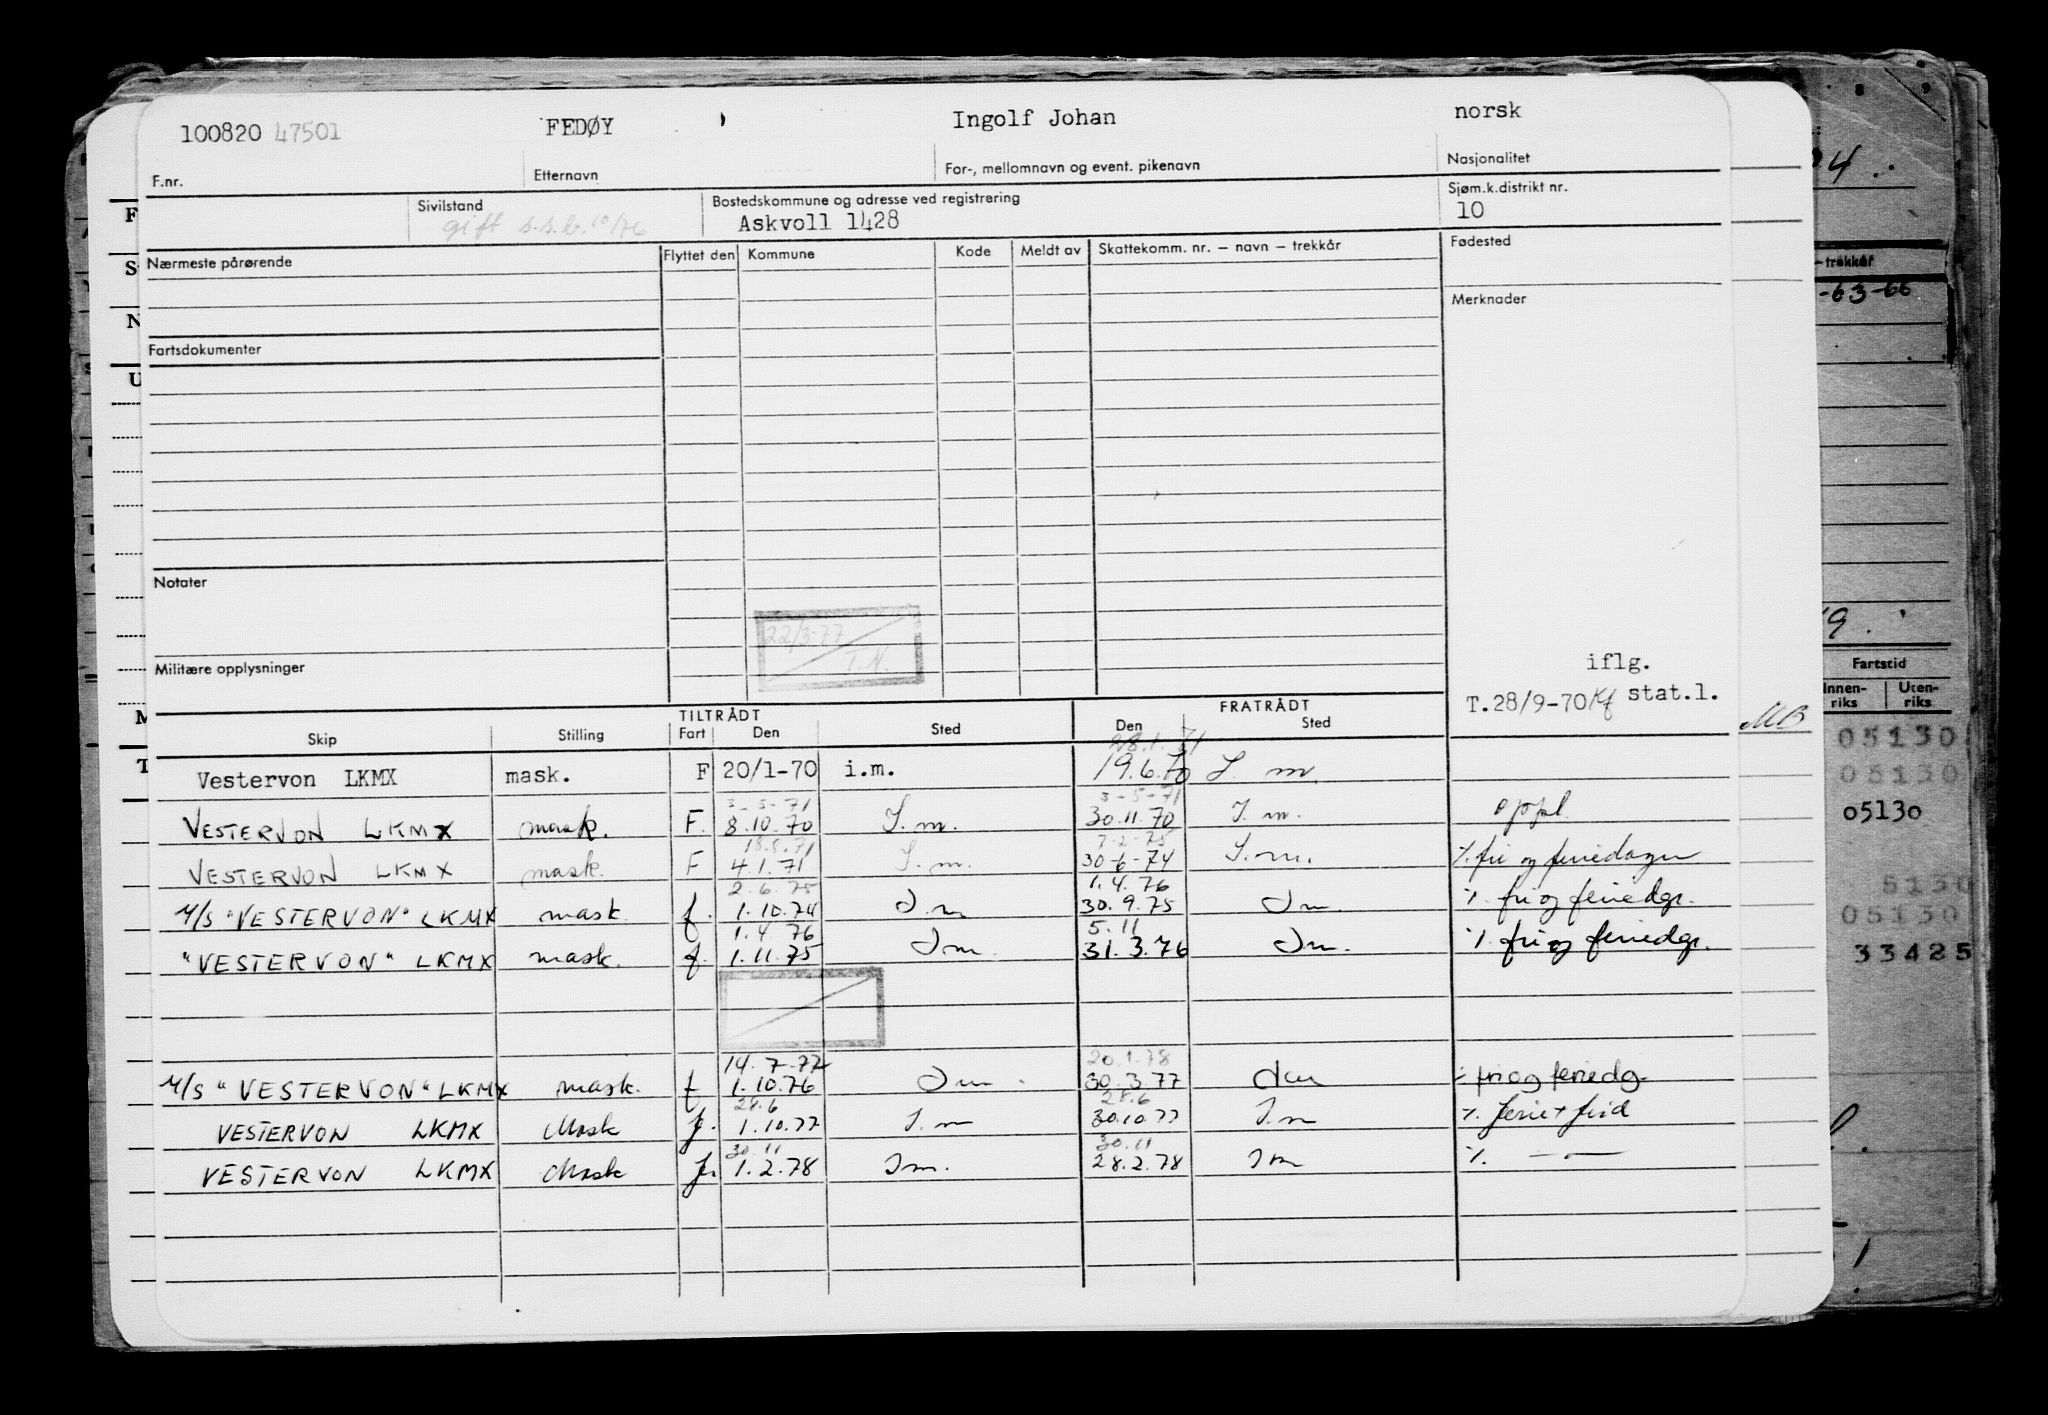 100820 47501 FEDØY , Ingolf Johan norsk
F.nr. Etternavn For-, mellomnavn og event. pikenavn Nasjonalitet
Sivilstand Bostedskommune og adresse ved registrering Sjøm.k.distrikt nr.
gift s.s.b. 10/76 Askvoll 1428 10
Nærmeste pårørende Flyttet den Kommune Kode Meldt av Skattekomm. nr. – navn – trekkår Fødested
Merknader
Fartsdokumenter
Notater
22/3-77
T.N.
Militære opplysninger
iflg.
T.28/9-70 stat.l.
TILTRÅDT FRATRÅDT
Skip Stilling Fart Den Sted Den Sted
28.1.71
Vestervon LKMX mask. F 20/1-70 i.m. 19.6.70 I.m.
3-5-71 3-5-71
VESTERVON LKMX mask. F. 8.10.70 I.m. 30.11.70 I.m. oppl.
18.8.71 7-2-75
VESTERVON LKMX mask. F 4.1.71 I.m. 30-6-74 I.m. % fri og feriedager
2.6.75 1.4.76
M/S "VESTERVON" LKMX mask. f. 1.10.74 Im 30.9.75 Im. % fri og feriedgr.
1.4.76 5.11
"VESTERVON" LKMX mask. f. 1.11.75 Im. 31.3.76 Im. % fri og feriedgr.
14.7.77 20.1.78
M/S "VESTERVON" LKMX mask. f 1.10.76 Im 30.3.77 Im % fri og feriedg.
28.6 28.6
VESTERVON LKMX Mask f. 1.10.77 I.m 30.10.77 I.m % ferie + frid
30.11 30.11
VESTERVON LKMX Mask f. 1.2.78 Im. 28.2.78 Im % —"—
MB
trekkår
-63-66
Fartstid
Innen-riks Uten-riks
05130
05130
05130
5130
05130
33425